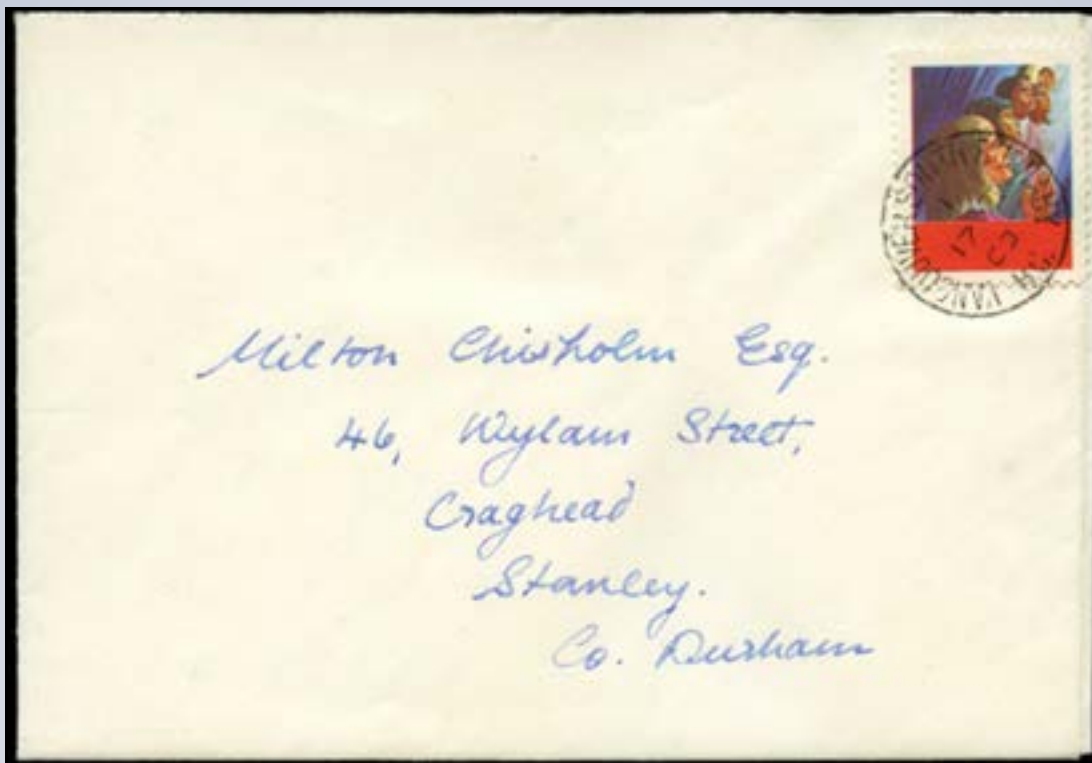 Milton Chisholm Esq.
46, Wylam Street,
Craghead
Stanley.
Co. Durham
VANCOUVER
17